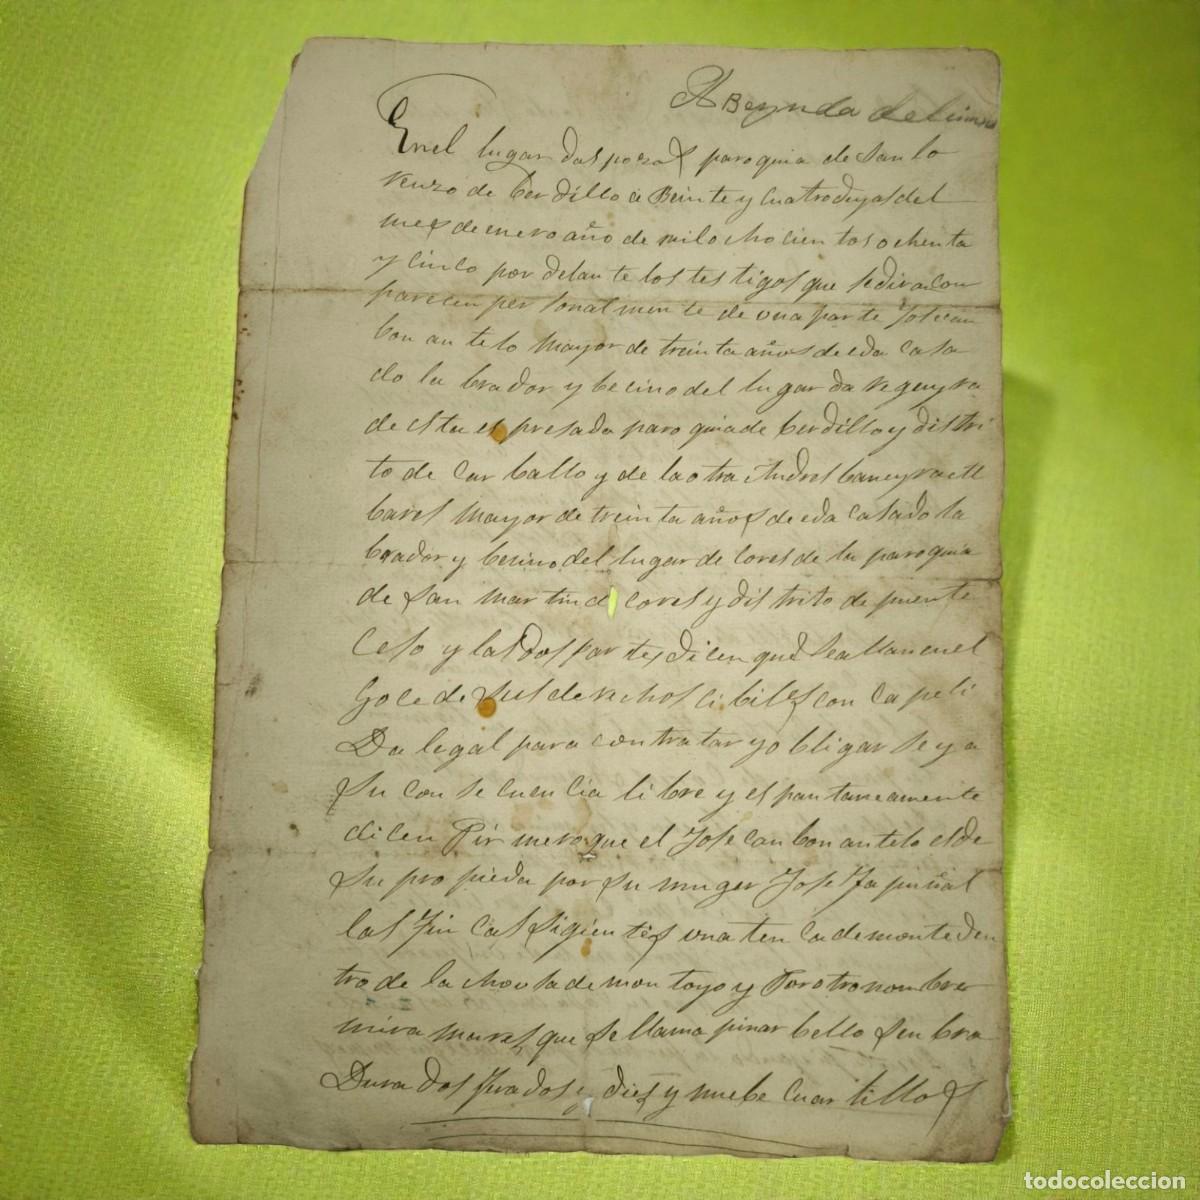 A Beynda de
En el lugar das pozas paroquia de san lo
renzo de berdillo á Beinte y cuatro deyas del
mes de enero año de mil ochocientos ochenta
y cinco por delante los testigos que se dira con
parecen personalmente de una parte Jose can
bon antelo mayor de treinta años de eda casa
do la brador y becino del lugar da regueyra
de esta espresada paroquia de berdillo y distri
to de car ballo y de la otra Andres baneyra
bares mayor de treinta años de eda casado la
brador y becino del lugar de cores de la paroquia
de san martin de cores y distrito de puente
ceso y las dos partes dicen que se allan en el
goce de sus derechos cibiles con capeli
Da legal para contratar y obligarse y a
su consecuencia libre y espantaneamente
dicen Pirmero que el Jose canbon antelo es de
su propieda por su muger Josefa piñal
las fincas sigientes una tenca de monte den
tro de la chousa de montoyo y Por otro nombre
mira mares que se llama pinar bello senbra
Dura dos ferados y dies y nuebe cuartillos
todocoleccion